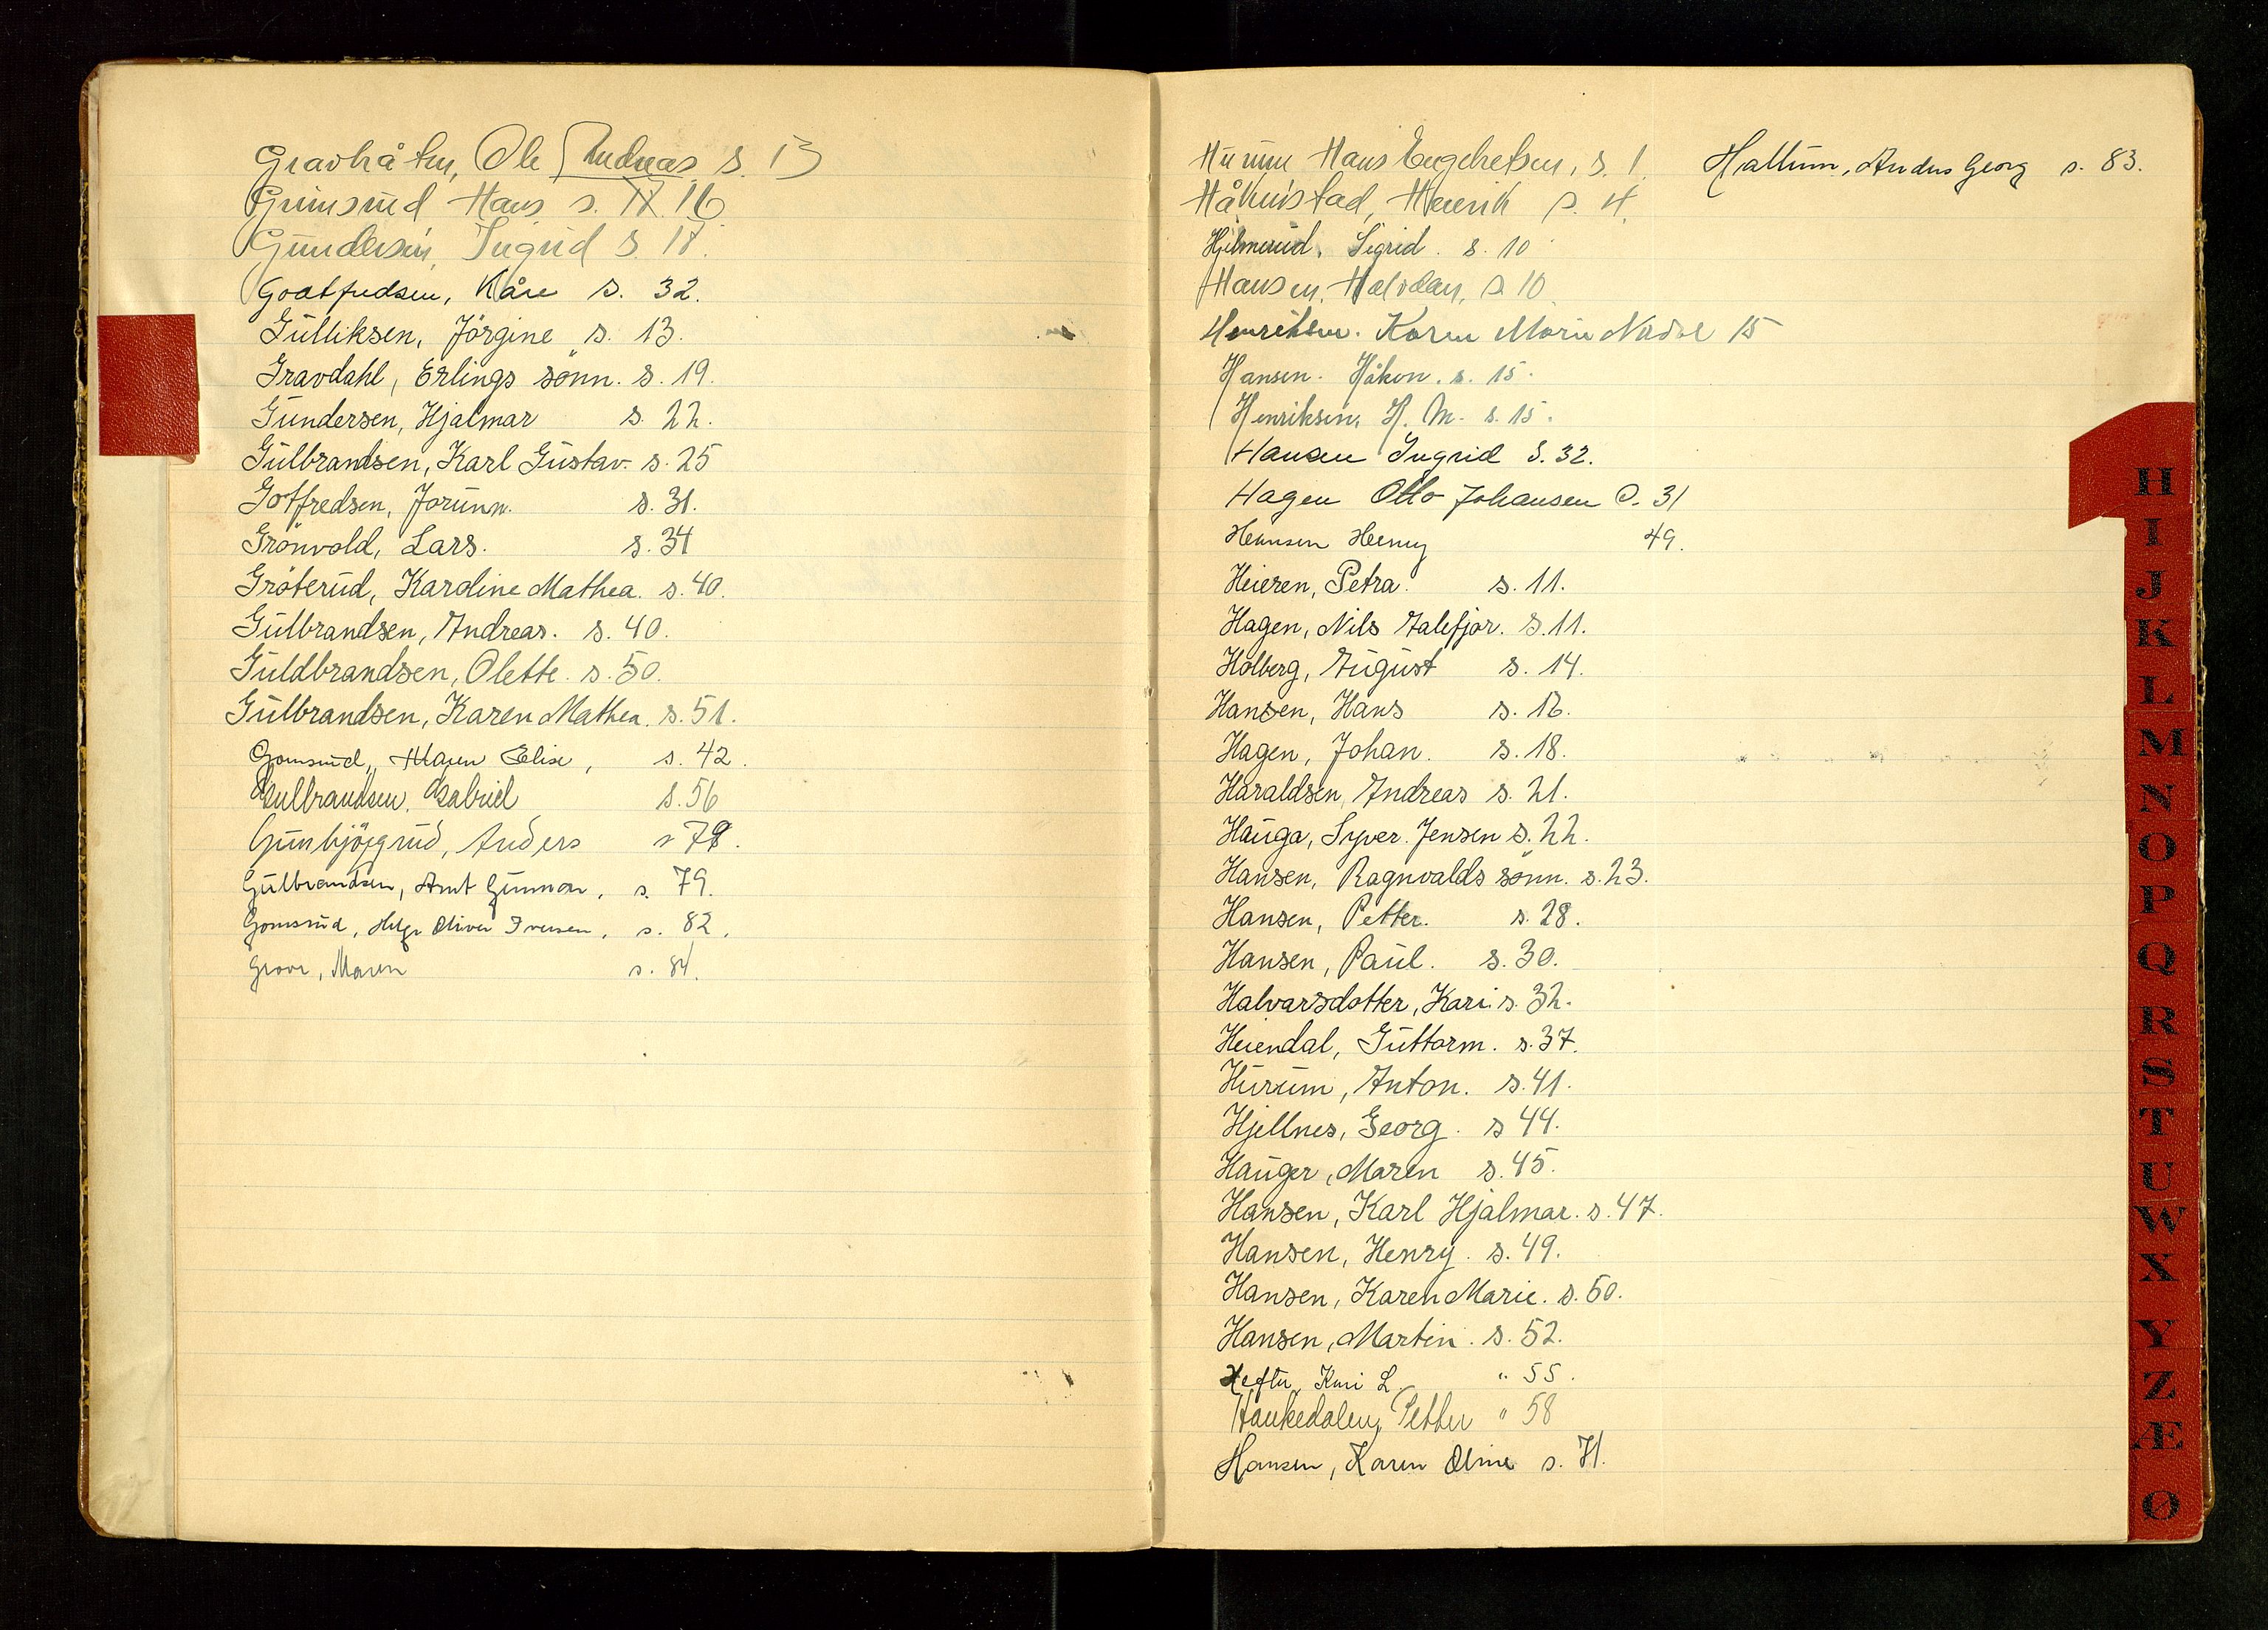 Gravbråten, Ole Andreas s. 13
Grimsrud Hans s. 16
Gundersen, Ingrid s. 18.
Goatfredsen, Kåre s. 32.
Gulliksen, Jörgine s. 13.
Gravdahl, Erlings sönn. s. 19.
Gundersen, Hjalmar s. 22.
Gulbrandsen, Karl Gustav. s. 25
Gotfredsen, Jorunn. s. 31.
Grönvold, Lars. s. 34
Gröterud, Karoline Mathea. s. 40.
Gulbrandsen, Andreas. s. 40.
Guldbrandsen, Olette. s. 50.
Gulbrandsen, Karen Mathea. s. 51.
Gomsrud, Maren Elise, s. 42.
Gulbrandsen. Gabriel s. 56
Gunbjörgrud, Anders s 78.
Gulbrandsen, Arnt Gunnar, s. 79.
Gomsrud, Helge Oliver Iversen, s. 82.
Grove, Maren s. 84.
Hurum Hans Engebretsen, s. 1.
Hallum, Anders Georg s. 83.
Håkenstad, Henrik s. 4.
Hjelmerud, Sigrid. s. 10
Hansen, Halvdan, s. 10
Henriksen. Karen Marie Nadol 15
Hansen. Håkon. s. 15.
Henriksen, H. M. s. 15.
Hansen Ingrid S. 32.
Hagen Otto Johansen S. 31
Hansen Henry 49.
Heieren, Petra. s. 11.
Hagen, Nils Talefjor. s. 11.
Holberg, August s. 14.
Hansen, Hans s. 16.
Hagen, Johan. s. 18.
Haraldsen, Andreas s. 21.
Hauga, Syver. Jensen s. 22.
Hansen, Ragnvalds sönn. s. 23.
Hansen, Petter. s. 28.
Hansen, Paul. s. 30.
Halvarsdotter, Kari. s. 32.
Heiendal, Guttorm. s. 37.
Hurum, Anton. s. 41.
Hjellnes, Georg. s 44.
Hauger, Maren s. 45.
Hansen, Karl Hjalmar. s. 47.
Hansen, Henry. s. 49.
Hansen, Karen Marie. s. 50.
Hansen, Martin. s. 52.
Hefte, Kari L. " 55.
Haukedalen, Petter " 58
Hansen, Karen Oline s. 71.
H
I
J
K
L
M
N
O
P
Q
R
S
T
U
W
X
Y
Z
Æ
Ø